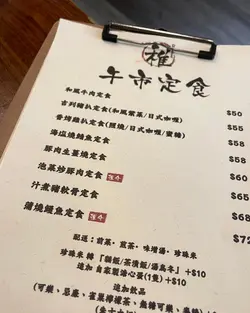 午市定食
和風牛肉定食 $50
吉列豬扒定食(和風紫菜/日式咖喱) $55
香烤雞扒定食(照燒/日式咖喱/蜜糖) $55
海鹽燒鯖魚定食 $58
豚肉生薑燒定食 $58
泡菜炒豚肉定食 $65
汁煮豬軟骨定食 $68
蒲燒鰻魚定食 $72
配送：前菜、煎茶、味增湯、珍珠米
珍珠米 轉「貓飯/茶漬飯/湯烏冬」+$10
追加 自家製溏心蛋(1隻)+$10
追加飲品